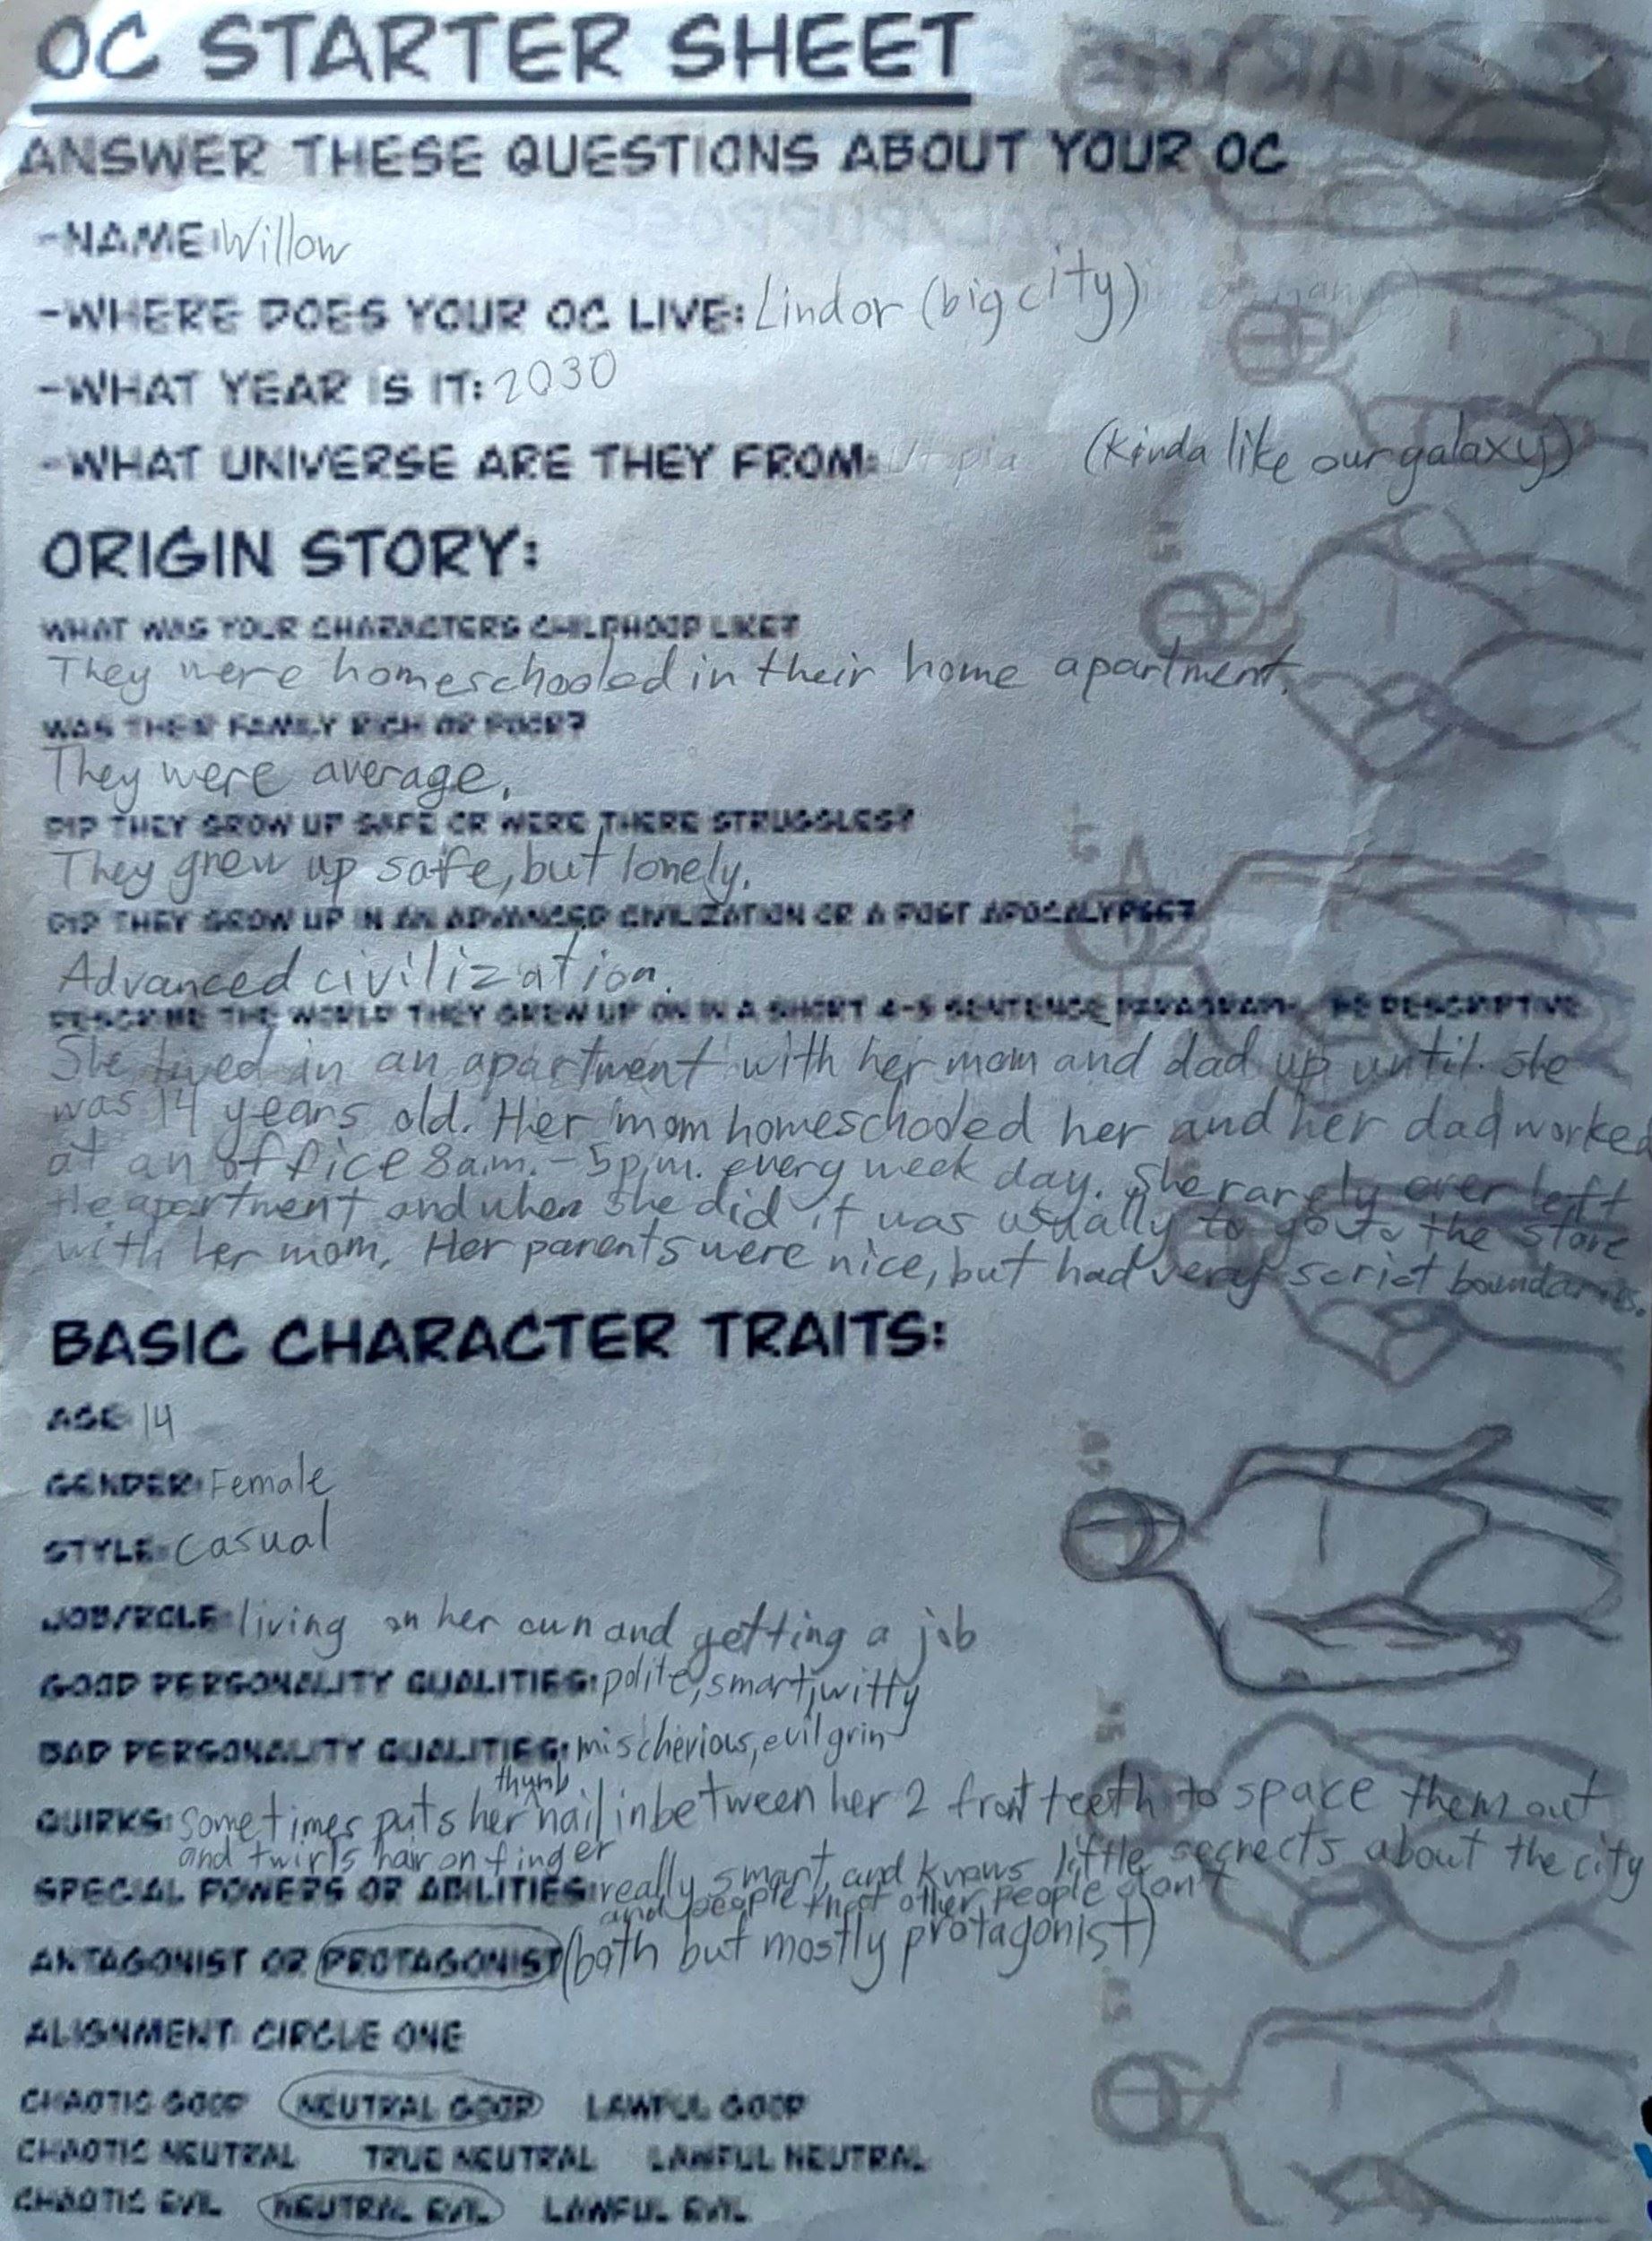 OC STARTER SHEET
ANSWER THESE QUESTIONS ABOUT YOUR OC
-NAME: Willow
-WHERE DOES YOUR OC LIVE: Lindor (big city)
-WHAT YEAR IS IT: 2030
-WHAT UNIVERSE ARE THEY FROM: Utopia (Kinda like our galaxy)
ORIGIN STORY:
WHAT WAS YOUR CHARACTERS CHILDHOOD LIKE?
They were homeschooled in their home apartment.
WAS THEIR FAMILY RICH OR POOR?
They were average.
DID THEY GROW UP SAFE OR WERE THERE STRUGGLES?
They grew up safe, but lonely.
DID THEY GROW UP IN AN ADVANCED CIVILIZATION OR A POST APOCALYPSE?
Advanced civilization.
DESCRIBE THE WORLD THEY GREW UP ON IN A SHORT 4-5 SENTENCE PARAGRAPH. BE DESCRIPTIVE
She lived in an apartment with her mom and dad up until she
was 14 years old. Her mom homeschooled her and her dad worked
at an office 8a.m.-5p.m. every week day. She rarely ever left
the apartment and when she did it was usually to go to the store
with her mom. Her parents were nice, but had very scrict boundaries.
BASIC CHARACTER TRAITS:
AGE: 14
GENDER: Female
STYLE: casual
JOB/ROLE: living on her own and getting a job
GOOD PERSONALITY QUALITIES: polite, smart, witty
BAD PERSONALITY QUALITIES: mischevious, evil grin
QUIRKS: Sometimes puts her thumb nail inbetween her 2 front teeth to space them out
and twirls hair on finger
SPECIAL POWERS OR ABILITIES: really smart, and knows little secrects about the city
and people that other people don't
ANTAGONIST OR PROTAGONIST (both but mostly protagonist)
ALIGNMENT: CIRCLE ONE
CHAOTIC GOOD NEUTRAL GOOD LAWFUL GOOD
CHAOTIC NEUTRAL TRUE NEUTRAL LAWFUL NEUTRAL
CHAOTIC EVIL NEUTRAL EVIL LAWFUL EVIL